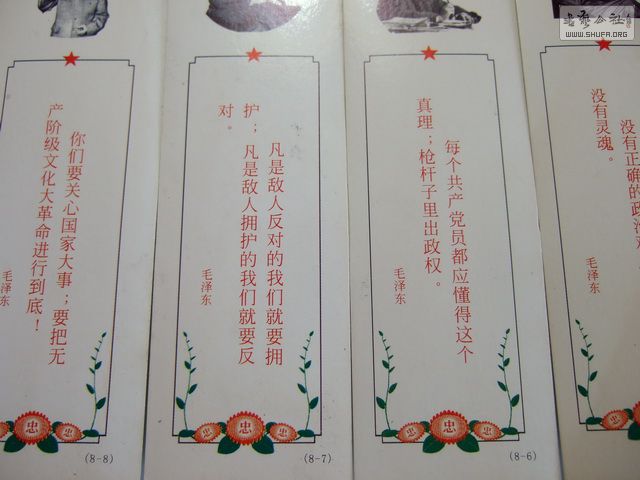 书法公社
WWW.SHUFA.ORG
你们要关心国家大事；要把无
产阶级文化大革命进行到底！
毛泽东
忠
忠
忠
(8-8)
凡是敌人反对的我们就要拥
护；凡是敌人拥护的我们就要反
对。
毛泽东
忠
忠
忠
(8-7)
每个共产党员都应懂得这个
真理；枪杆子里出政权。
毛泽东
忠
忠
忠
(8-6)
没有正确的政治观
没有灵魂。
忠
忠